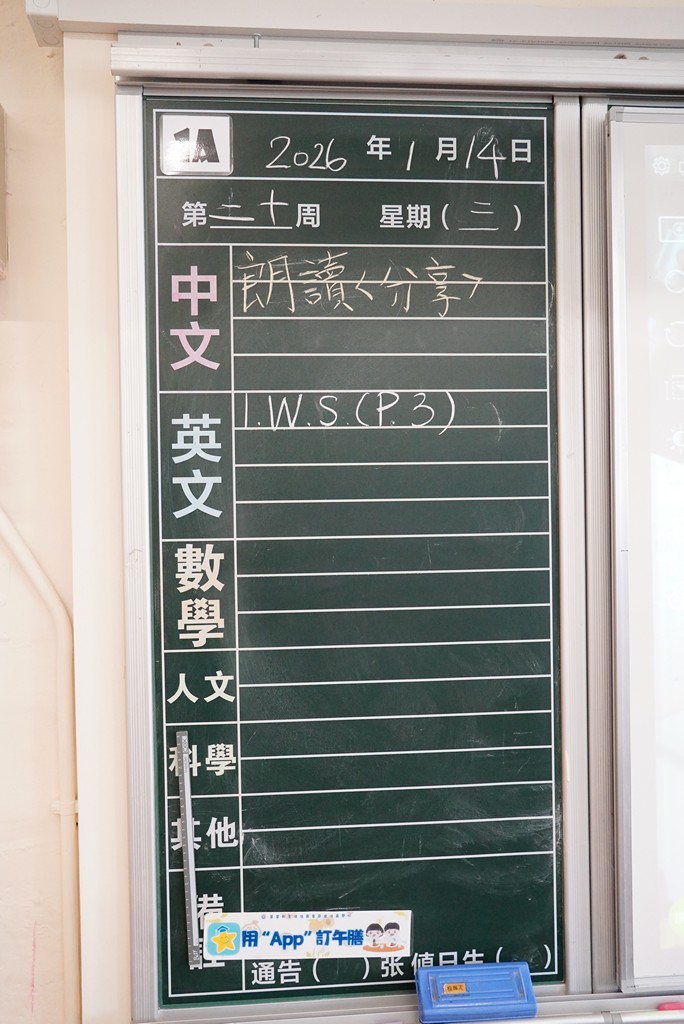 1A
2026 年 1 月 14 日
第二十周 星期(三)
中文 朗讀<分享>
英文 1.W.S.(P.3)
數學
人文
科學
其他
備註
用 “App” 訂午膳
通告( )张